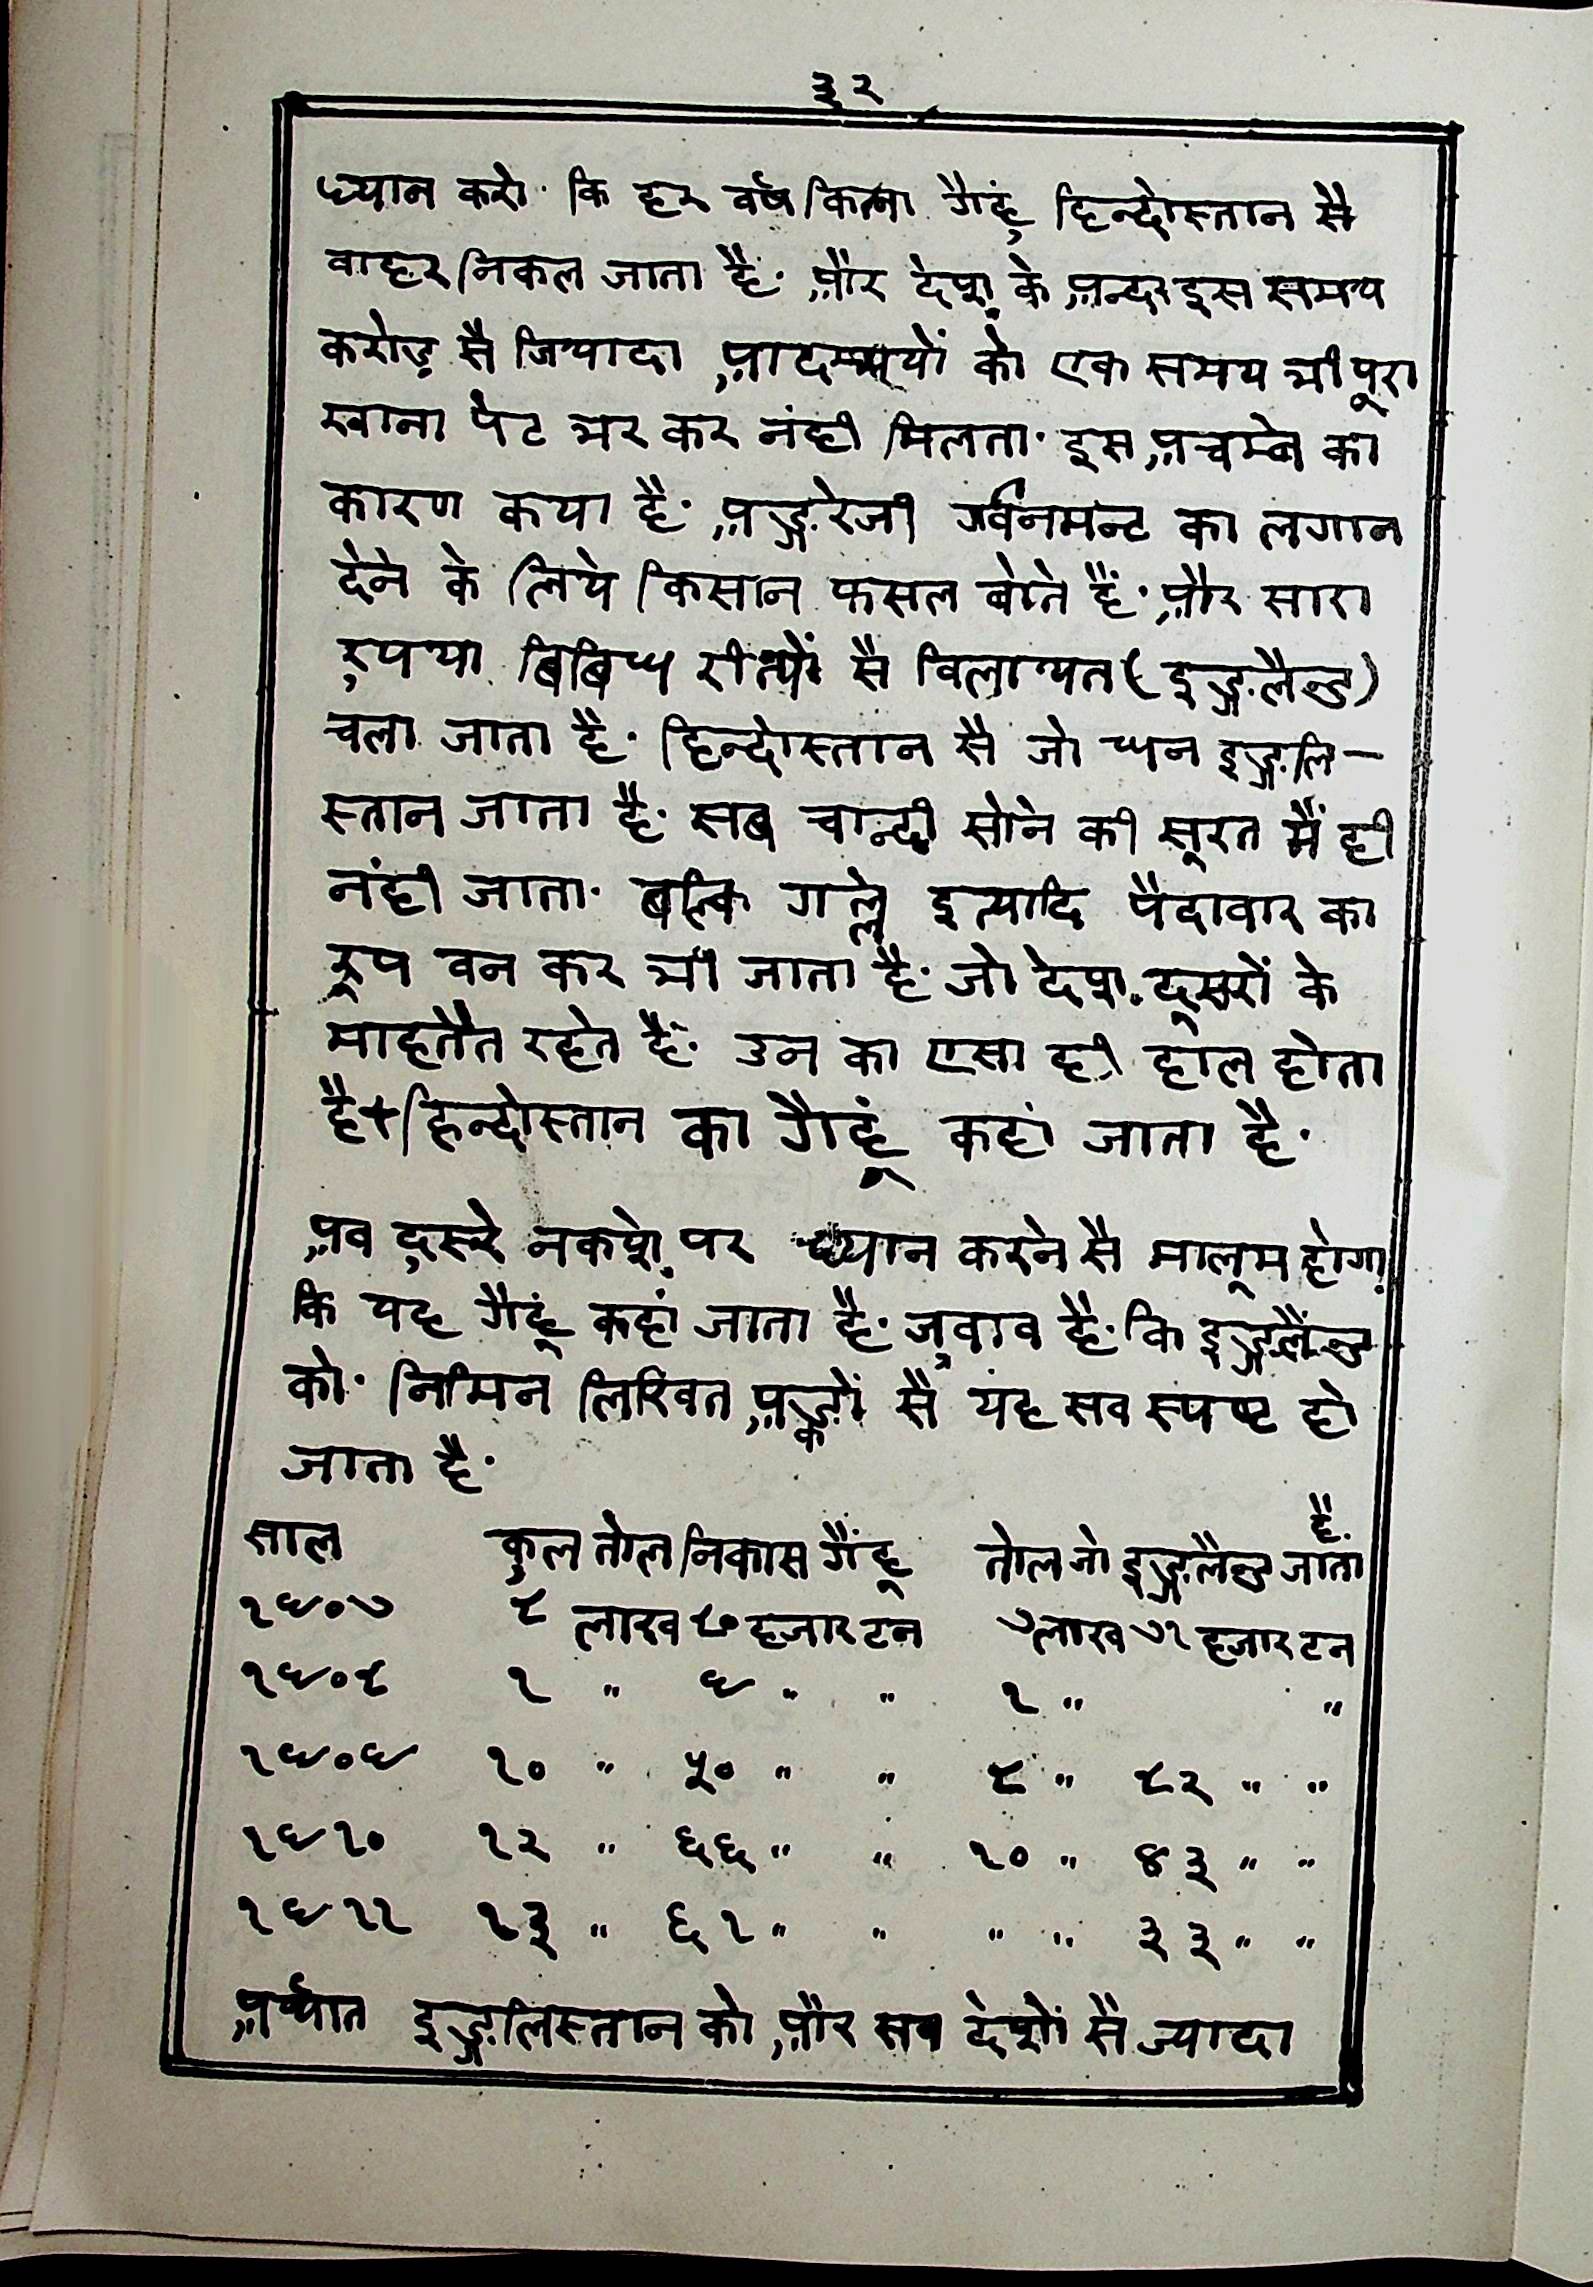 ३२
ध्यान करो· कि हर वर्ष कित्ना गैहूं हिन्दोस्तान सै
वाहर निकल जाता है· और देश के अन्दर इस समय
करोड़ सै जियादा आदम्यों को एक समय भी पूरा
खाना पेट भर कर नंही मिलता· इस अचम्बे का
कारण कया है· अङ्गरेजी गर्वनमन्ट का लगान
देने के लिये किसान फसल बोते हैं· और सारा
रुपया बिबिध रीत्यों सै विलायत (इङ्गलैन्ड)
चला जाता है· हिन्दोस्तान सै जो धन इङ्गलि–
स्तान जाता है· सब चान्दी सोने की सूरत मैं ही
नंही जाता· बल्कि गल्ले इत्यादि पैदावार का
रूप वन कर भी जाता है· जो देश दूसरों के
माहतैत रहते हैं· उन का एसा ही हाल होता
है+हिन्दोस्तान का गैहूं कहां जाता है·
अव दुस्रे नकशे पर ध्यान करने सै मालूम होगा
कि यह गैहूं कहां जाता है· जुवाव है· कि इङ्गलैन्ड
को· निमिन लिखित अङ्कों सै यह सव स्पष्ट हो
जाता है·
साल कुल तोल निकास गैंहू तोल जो इङ्गलैन्ड जाता है·
१९०७ ८ लाख ८० हजार टन ७ लाख ७१ हजार टन
१९०८ १ " ९ " " १ " "
१९०९ १० " ५० " " ८ " ८२ " "
१९१० १२ " ६६ " " १० " ४३ " "
१९११ १३ " ६१ " " " " ३३ " "
अर्थात इङ्गलिस्तान को और सब देशों सै ज्यादा